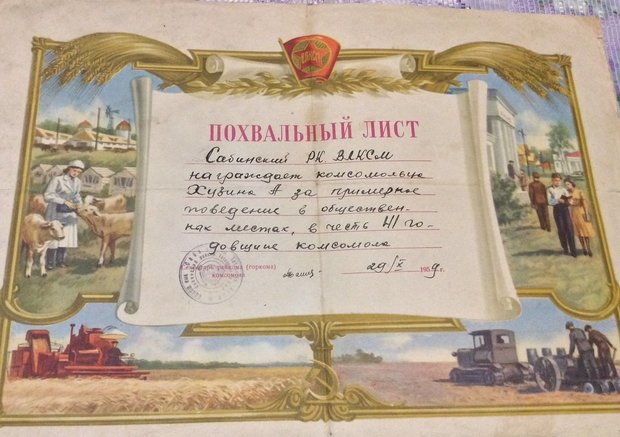 ВЛКСМ
ПОХВАЛЬНЫЙ ЛИСТ
Сабинский РК ВЛКСМ
награждает комсомольца
Хузина А за примерное
поведение в обществен-
ных местах, в честь 41 го-
довщине комсомола
Секретарь райкома (горкома)
комсомола
29/X 1959 г.